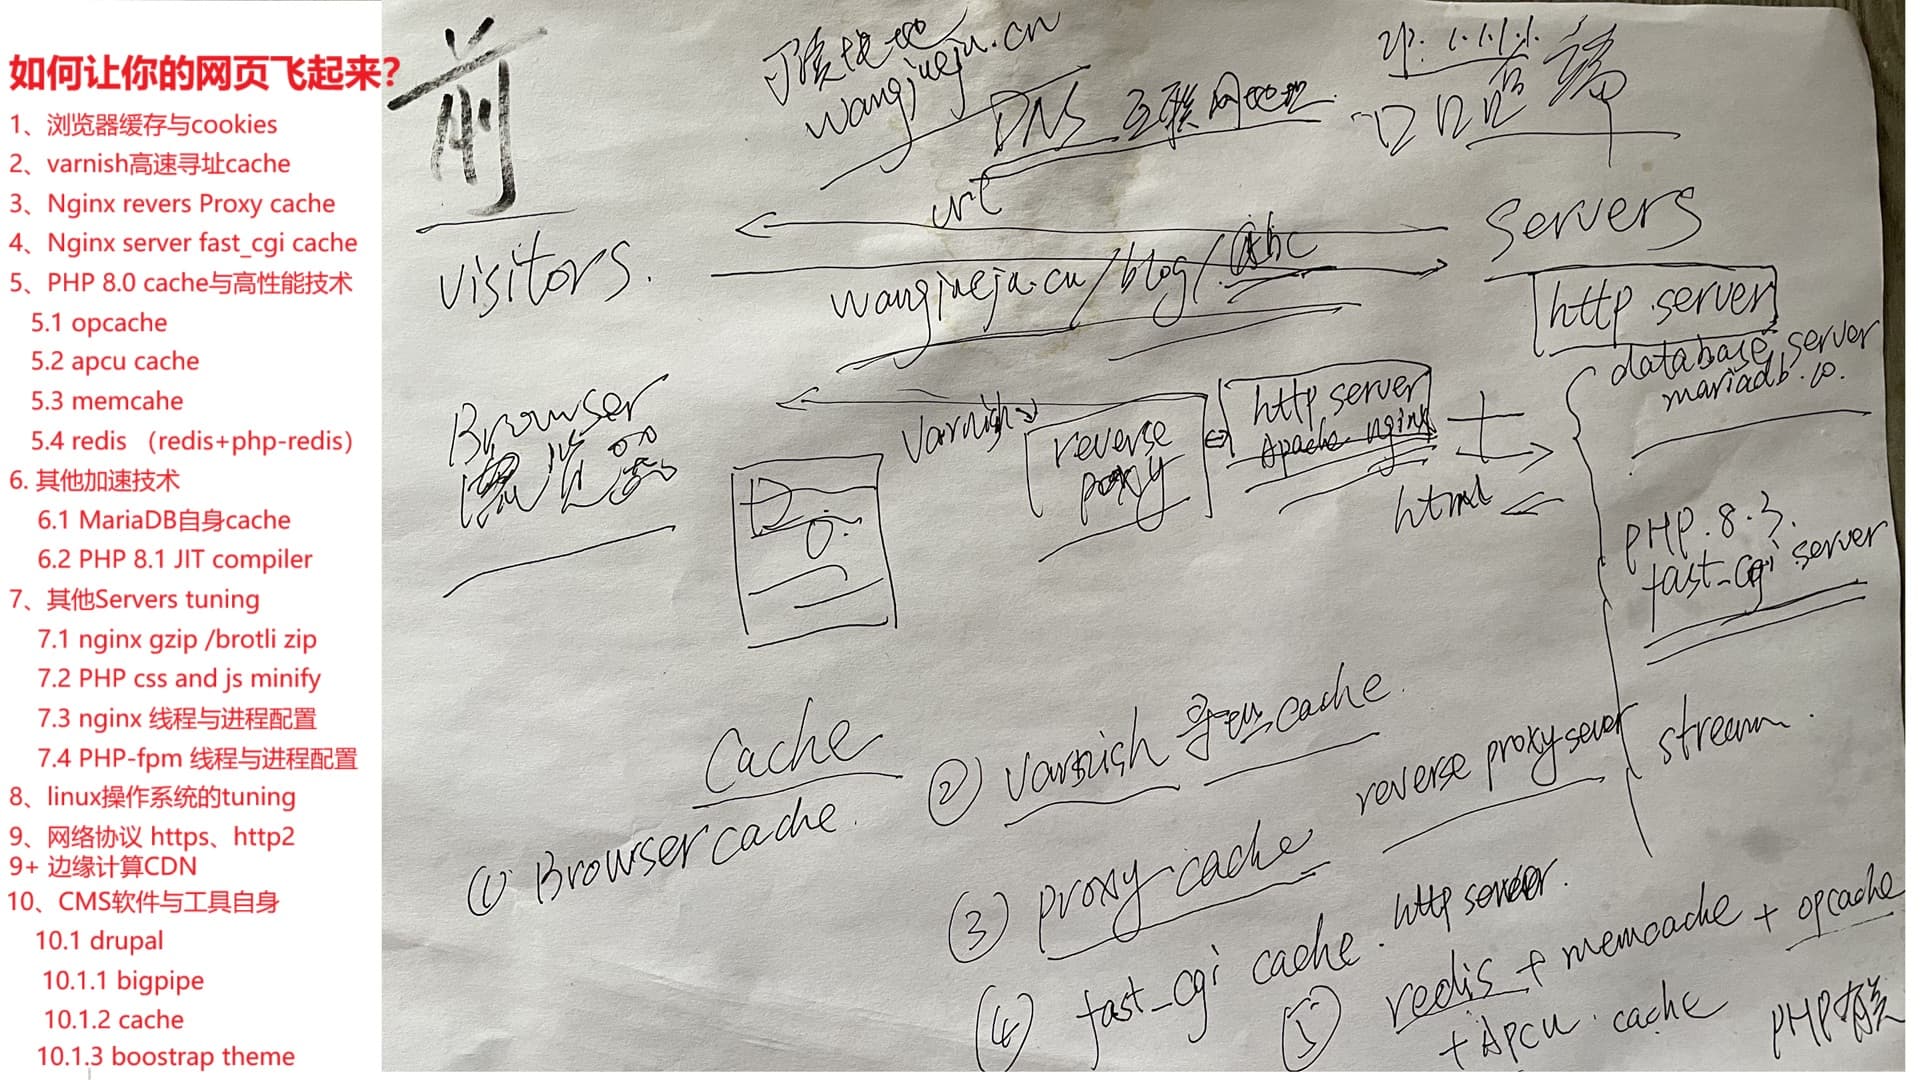 如何让你的网页飞起来?
1、浏览器缓存与cookies
2、varnish高速寻址cache
3、Nginx revers Proxy cache
4、Nginx server fast_cgi cache
5、PHP 8.0 cache与高性能技术
5.1 opcache
5.2 apcu cache
5.3 memcahe
5.4 redis （redis+php-redis）
6. 其他加速技术
6.1 MariaDB自身cache
6.2 PHP 8.1 JIT compiler
7、其他Servers tuning
7.1 nginx gzip /brotli zip
7.2 PHP css and js minify
7.3 nginx 线程与进程配置
7.4 PHP-fpm 线程与进程配置
8、linux操作系统的tuning
9、网络协议 https、http2
9+ 边缘计算CDN
10、CMS软件与工具自身
10.1 drupal
10.1.1 bigpipe
10.1.2 cache
10.1.3 boostrap theme
前
visitors.
Browser
浏览器
wangjueju.cn
DNS 互联网地址
IP. 1.1.1.1.
后端
url
wangjueju.cn/blog/.abc
Servers
http server
database server
mariadb.10.
PHP.8.3.
fast_cgi server
stream.
varnish
reverse
proxy
http server
Apache nginx
html
Cache
① Browser cache.
② varnish 寻址cache.
③ proxy cache
reverse proxy sever
④ fast_cgi cache. http server.
⑤ redis + memcache + opcache
+ APCU. cache
PHP有关